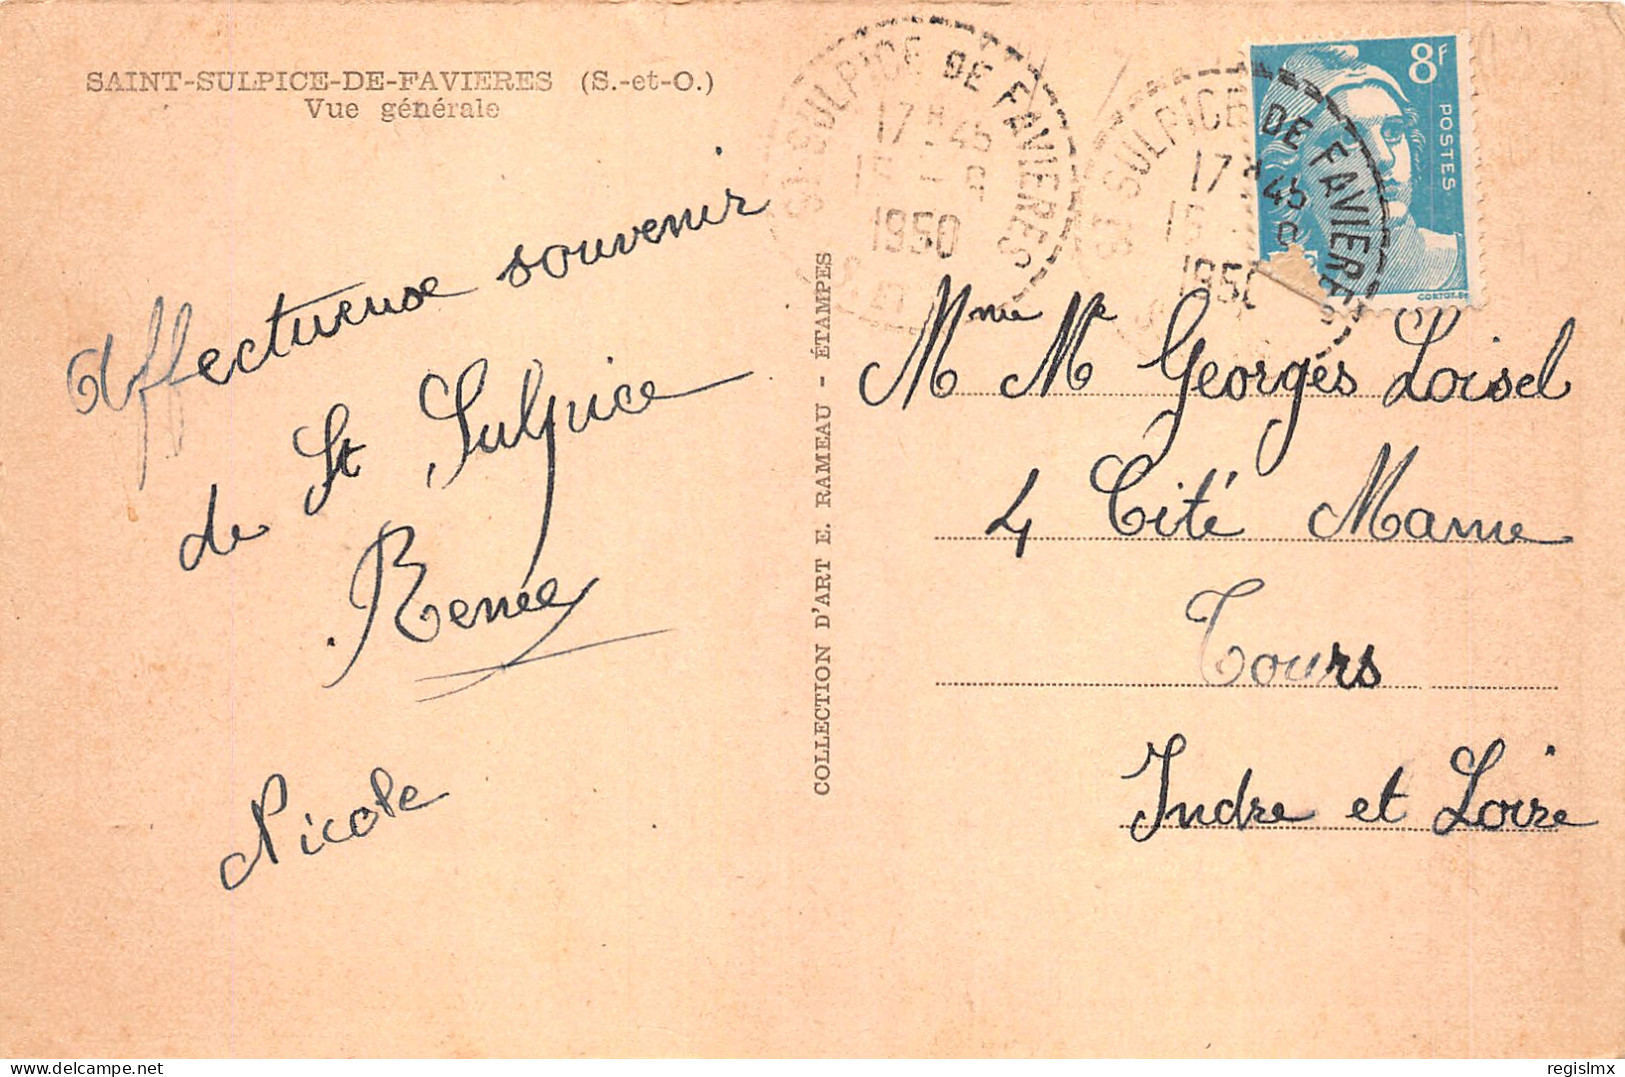 SAINT-SULPICE-DE-FAVIERES (S.-et-O.)
Vue générale
Affectueuse souvenir
de St Sulpice
Renée
Nicole
COLLECTION D'ART E. RAMEAU - ÉTAMPES
ST SULPICE DE FAVIERES
17 H 45
1950
ST SULPICE DE FAVIERES
17 H 45
15
1950
8F
POSTES
Mme Mr Georges Loisel
4 Cité Mame
Tours
Indre et Loire
regislmx